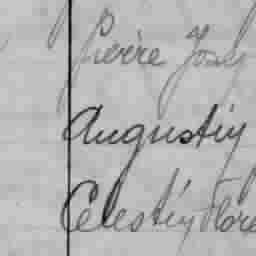 Pierre Josep
Augustin
Célestin Flore